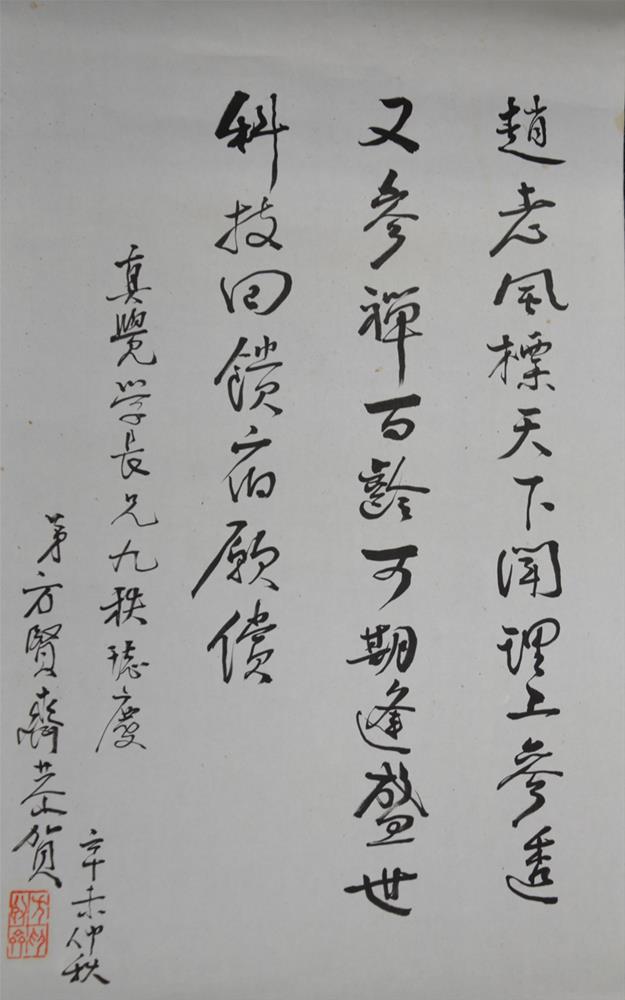 趙老風標天下聞理工參透
又參禪百齡可期逢盛世
科技回饋宿願償
真覺学長兄九秩誌慶
弟方賢齊恭賀
辛未仲秋